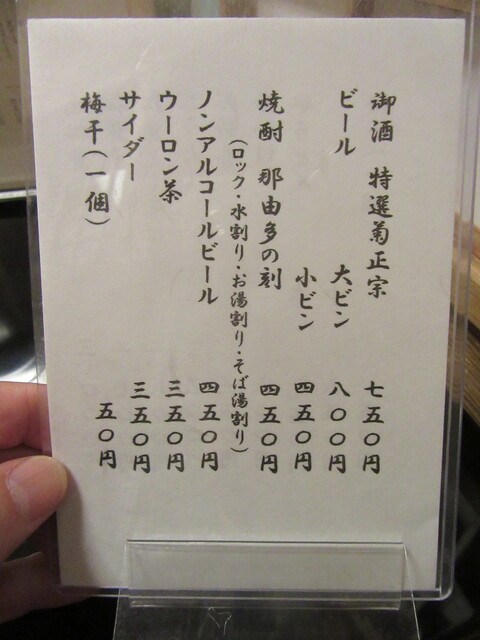 御酒 特選菊正宗 七五〇円
ビール 大ビン 八〇〇円
小ビン 四五〇円
焼酎 那由多の刻 四五〇円
(ロック・水割り・お湯割り・そば湯割り)
ノンアルコールビール 四五〇円
ウーロン茶 三五〇円
サイダー 三五〇円
梅干(一個) 五〇円